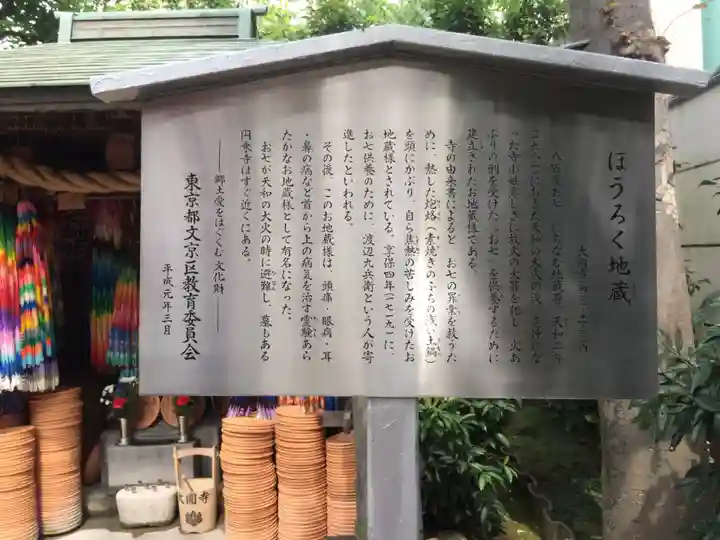 ほうろく地蔵
大円寺 向丘一-十一-三内
八百屋お七にちなむ地蔵尊。天和二年
(一六八二)におきた天和の大火の後、恋仲にな
った寺小姓恋しさに放火の大罪を犯し、火あ
ぶりの刑を受けた〝お七〟を供養するために
建立されたお地蔵様である。
寺の由来書によると、お七の罪業を救うた
めに、熱した炮烙(素焼きのふちの浅い土鍋)
を頭にかぶり、自ら焦熱の苦しみを受けたお
地蔵様とされている。享保四年(一七一九)に、
お七供養のために、渡辺九兵衛という人が寄
進したといわれる。
その後、このお地蔵様は、頭痛・眼病・耳
・鼻の病など首から上の病気を治す霊験あら
たかなお地蔵様として有名になった。
お七が天和の大火の時に避難し、墓もある
円乗寺はすぐ近くにある。
――郷土愛をはぐくむ文化財――
東京都文京区教育委員会
平成元年三月
大圓寺